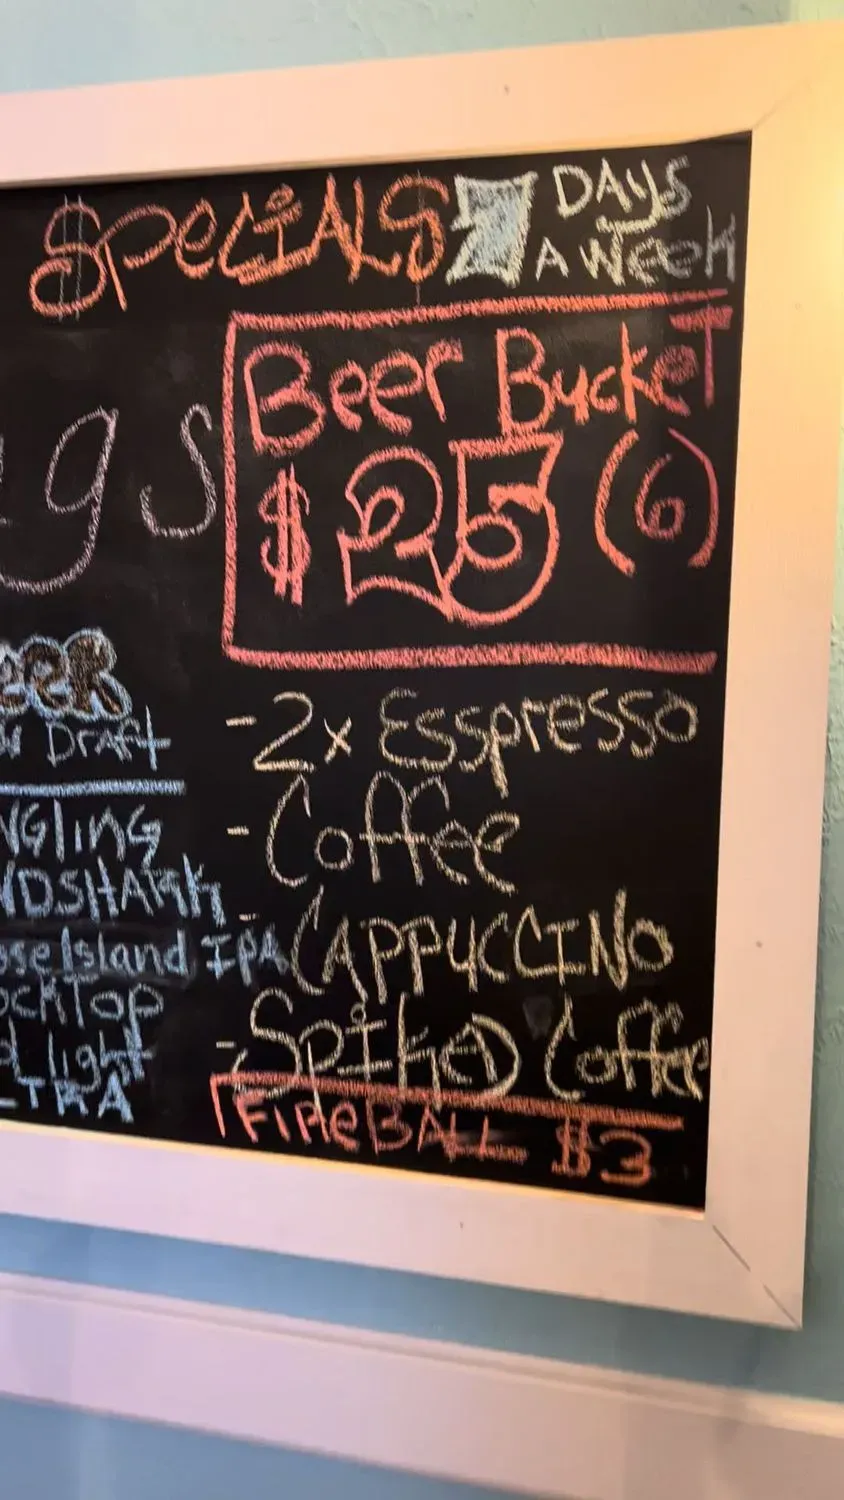 SPECIALS 7 DAYS
A WEEK
Beer Bucket
$25 (6)
gs
Draft
- 2x Esspresso
- Coffee
- CAPPUCCINO
- Spiked Coffee
FIREBALL $3
NGLING
NDSHARK
ose Island IPA
ockTop
d Light
LTRA